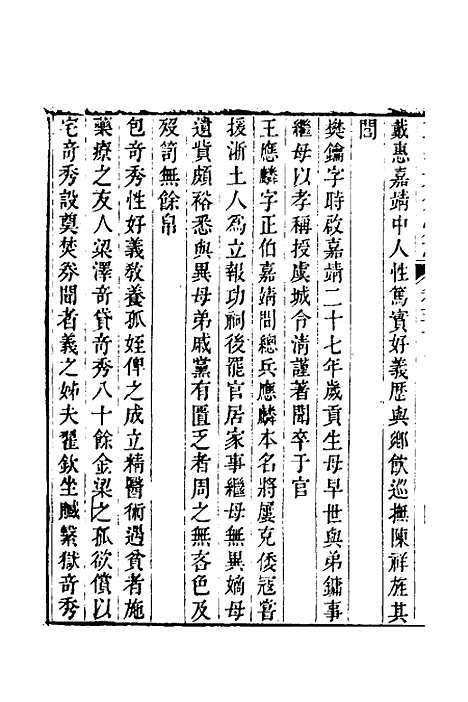 戴惠嘉靖中人性篤實好義歷與鄉飲巡撫陳祥旌其
閭
樊鑰字時啟嘉靖二十七年歲貢生母早世與弟鏞事
繼母以孝稱授虞城令清謹著聞卒于官
王應麟字正伯嘉靖間總兵應麟本名將屢克倭寇嘗
援浙土人爲立報功祠後罷官居家事繼母無異嫡母
遺貲頗裕悉與異母弟戚黨有匱乏者周之無吝色及
歿笥無餘帛
包奇秀性好義敎養孤姪俾之成立精醫術遇貧者施
藥療之友人梁澤奇貸奇秀八十餘金梁之孤欲償以
宅奇秀設奠焚券聞者義之姊夫翟欽坐贓繫獄奇秀